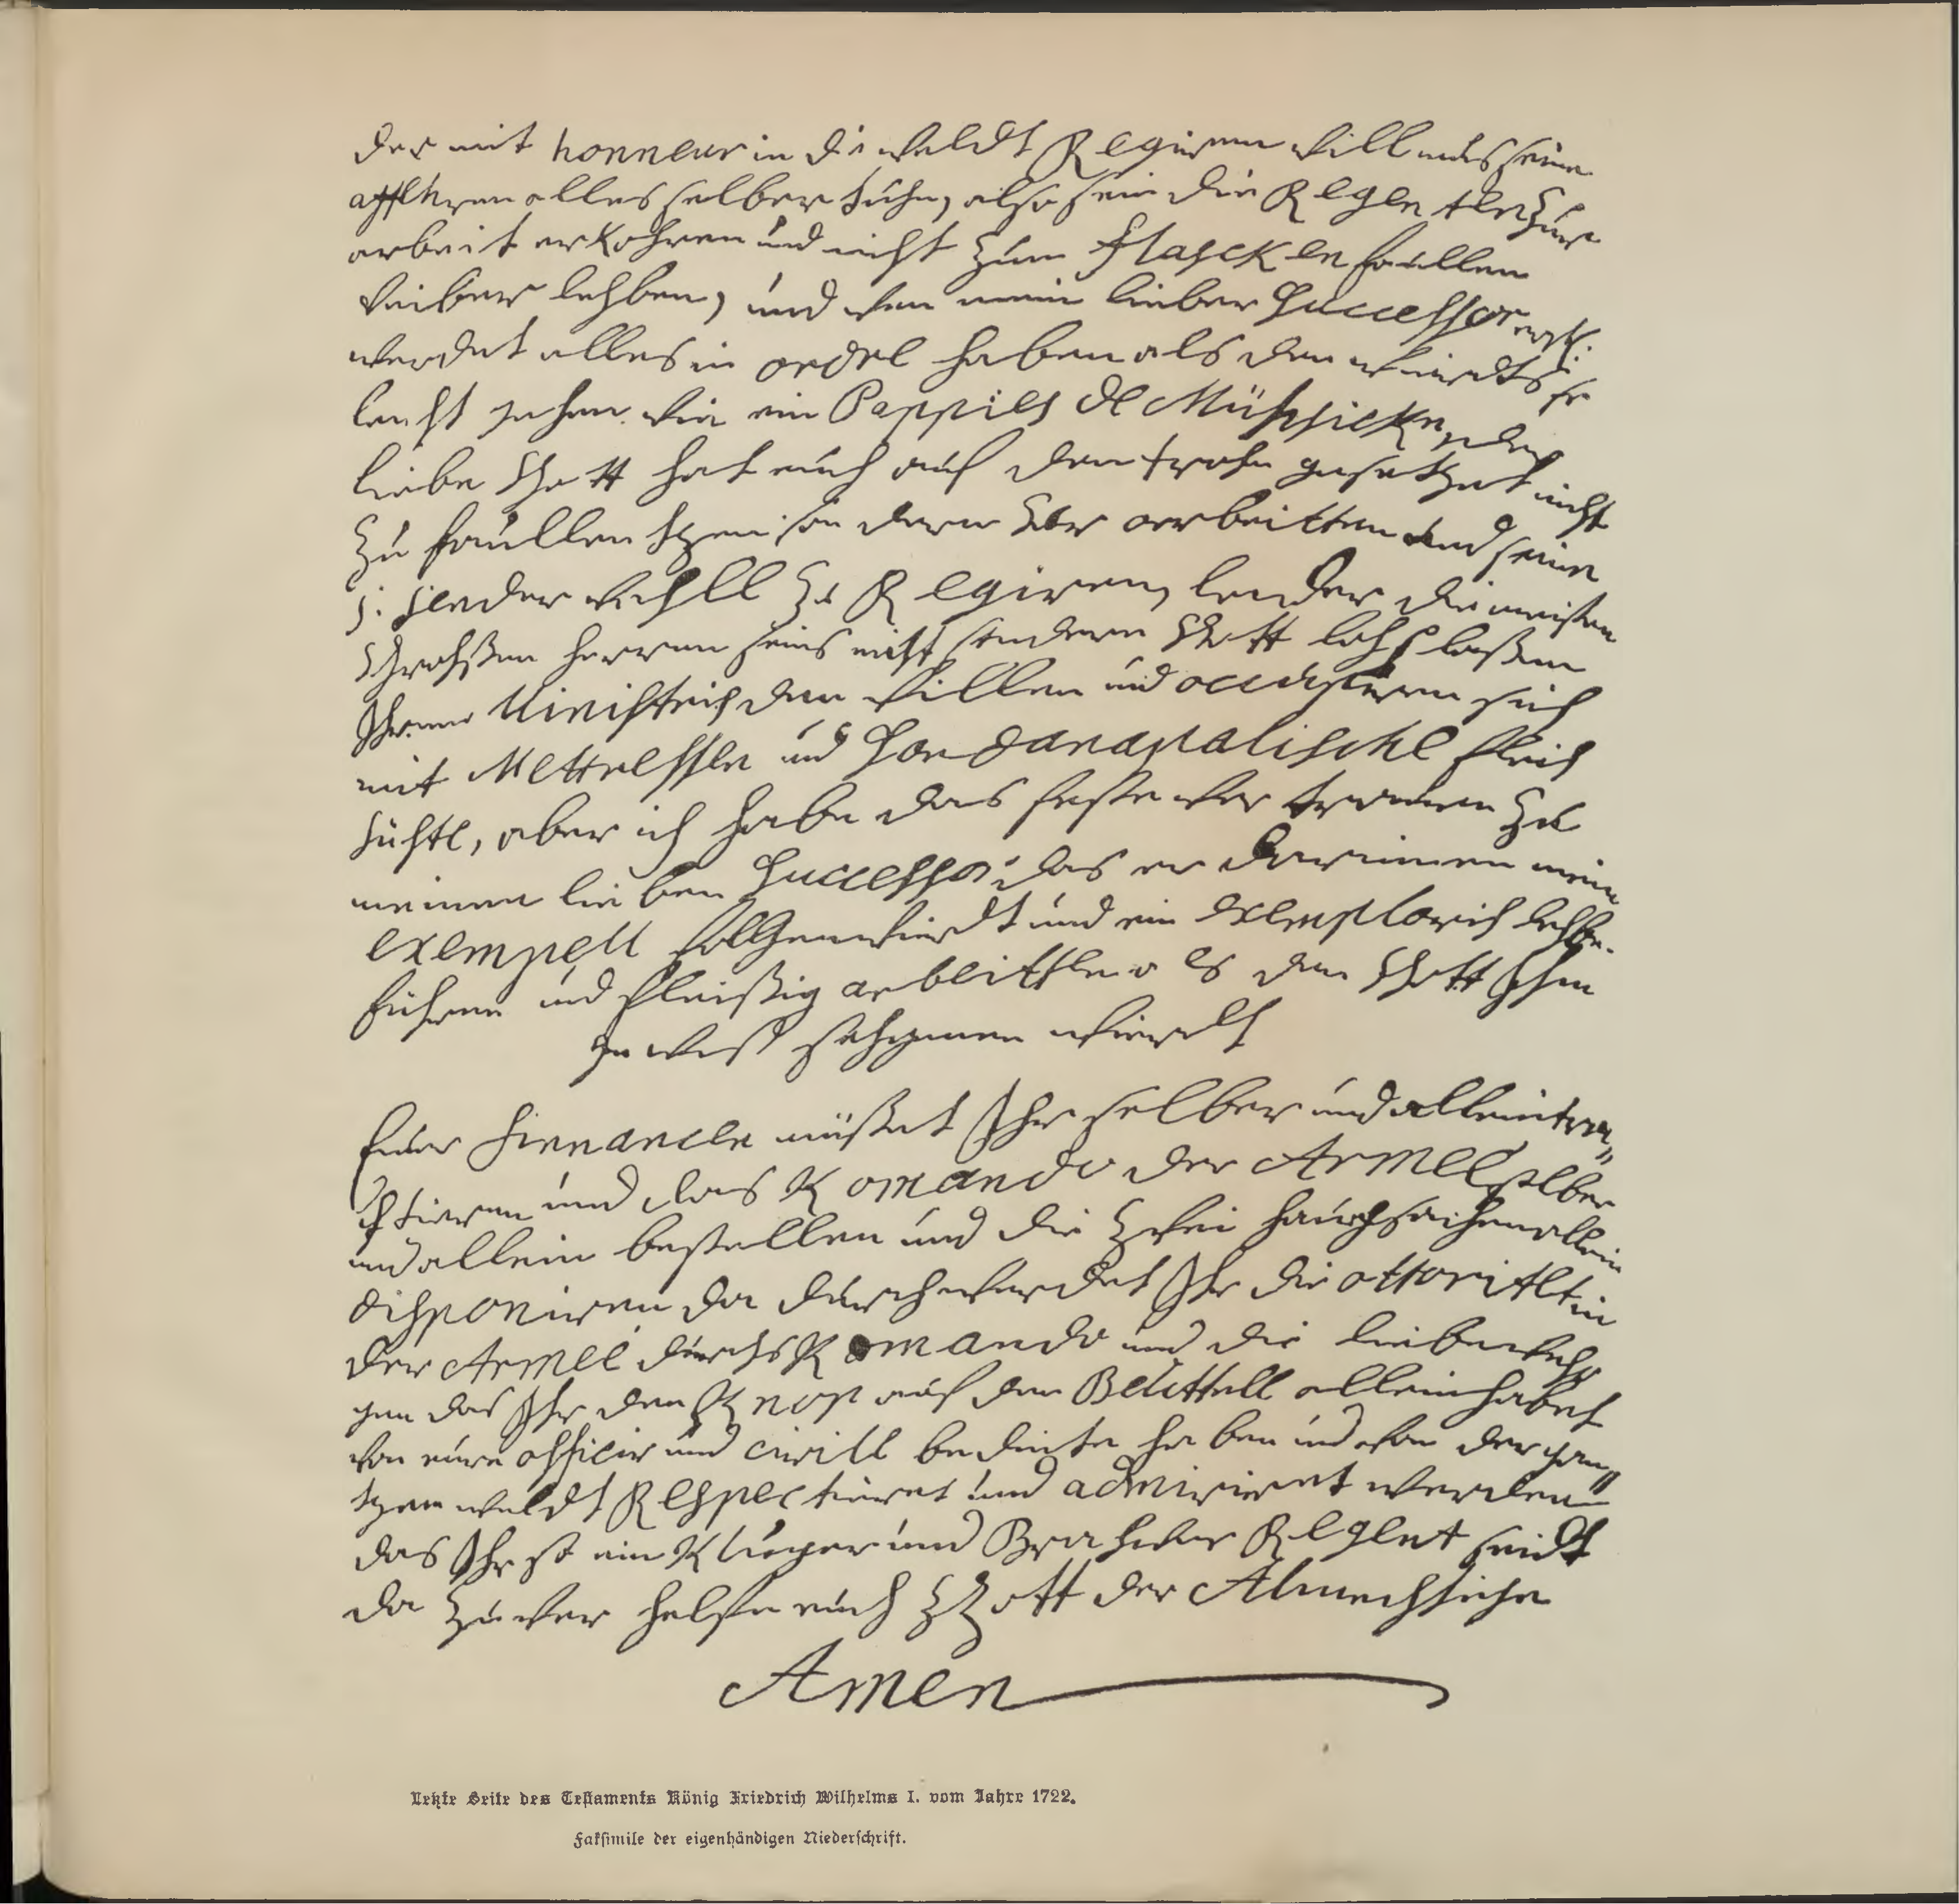 der mit honneur in die weldt Regiren will mus seine
affehren alles selber tuhn, also sein die Regenten zur
arbeit erkohren und nicht zum flascken faullen
weiber lehben, und wen mein lieber Successor erst.
werdet alles in ordre haben als den wierdts so
leucht gehen wie ein Pappies de Mussicke, der
liebe Gott hat euch auf den trohn gesetzet nicht
zu faullentzen sondern zur arbeitten und seine
lender wohll zu Regiren, leuder die meisten
Grohssen herren seins nicht sondern Gott lohs lassen
Ihrem Ministris den willen und occupieren sich
mit Mettressen und Sardanapalische fleis
lühste, aber ich habe das feste vertrauen zu
meinen lieben Successor das er darinnen mein
exempell folgen wierdt und ein exemplaris lehben
führen und fleissig arbeitten als den Gott Ihn
gewis sehgenen wierdt
Euer Finnancen müsset Ihr selber und allein trac„
tieren und das Komando der Armee selber
und allein bestellen und die zwei hauptsachen allein
disponieren da durch werdet Ihr die ottoritet in
der Armee durchs Komando und die liebe wehs
gen das Ihr den Knop auf den Beuttell allein habet
von eure officir und civill bedinte haben und von der gan„
tzen weldt Respectieret und admiriret werden
das Ihr so ein Kluger und Brahwer Regent seidt
da zu wer helfe euch Gott der Almechtiche
Amen
Letzte Seite des Testaments König Friedrich Wilhelms I. vom Jahre 1722.
Faksimile der eigenhändigen Niederschrift.